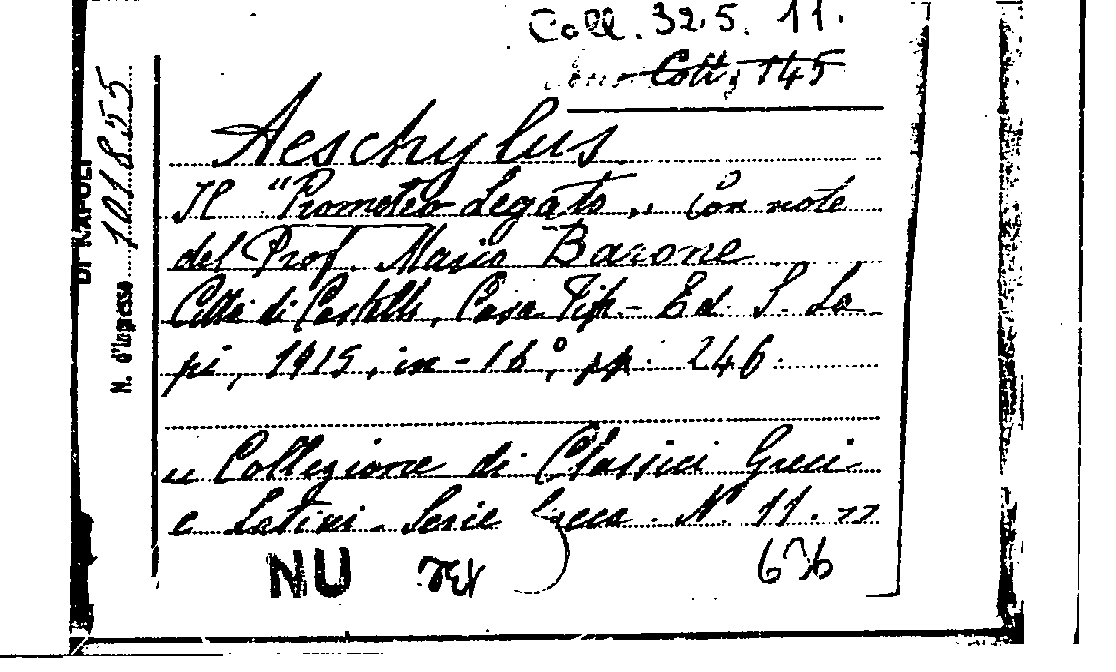 Coll. 32.5. 11.
Coll. 145
Aeschylus
Il "Prometeo Legato„. Con note
del Prof. Mario Barone
Città di Castello, Casa Tip.- Ed. S. La-
pi, 1915, in-16°, pp. 246.
"Collezione di Classici Greci
e Latini. Serie Greca. N. 11."
NU
636
DI NAPOLI
N. d'Ingresso 101855